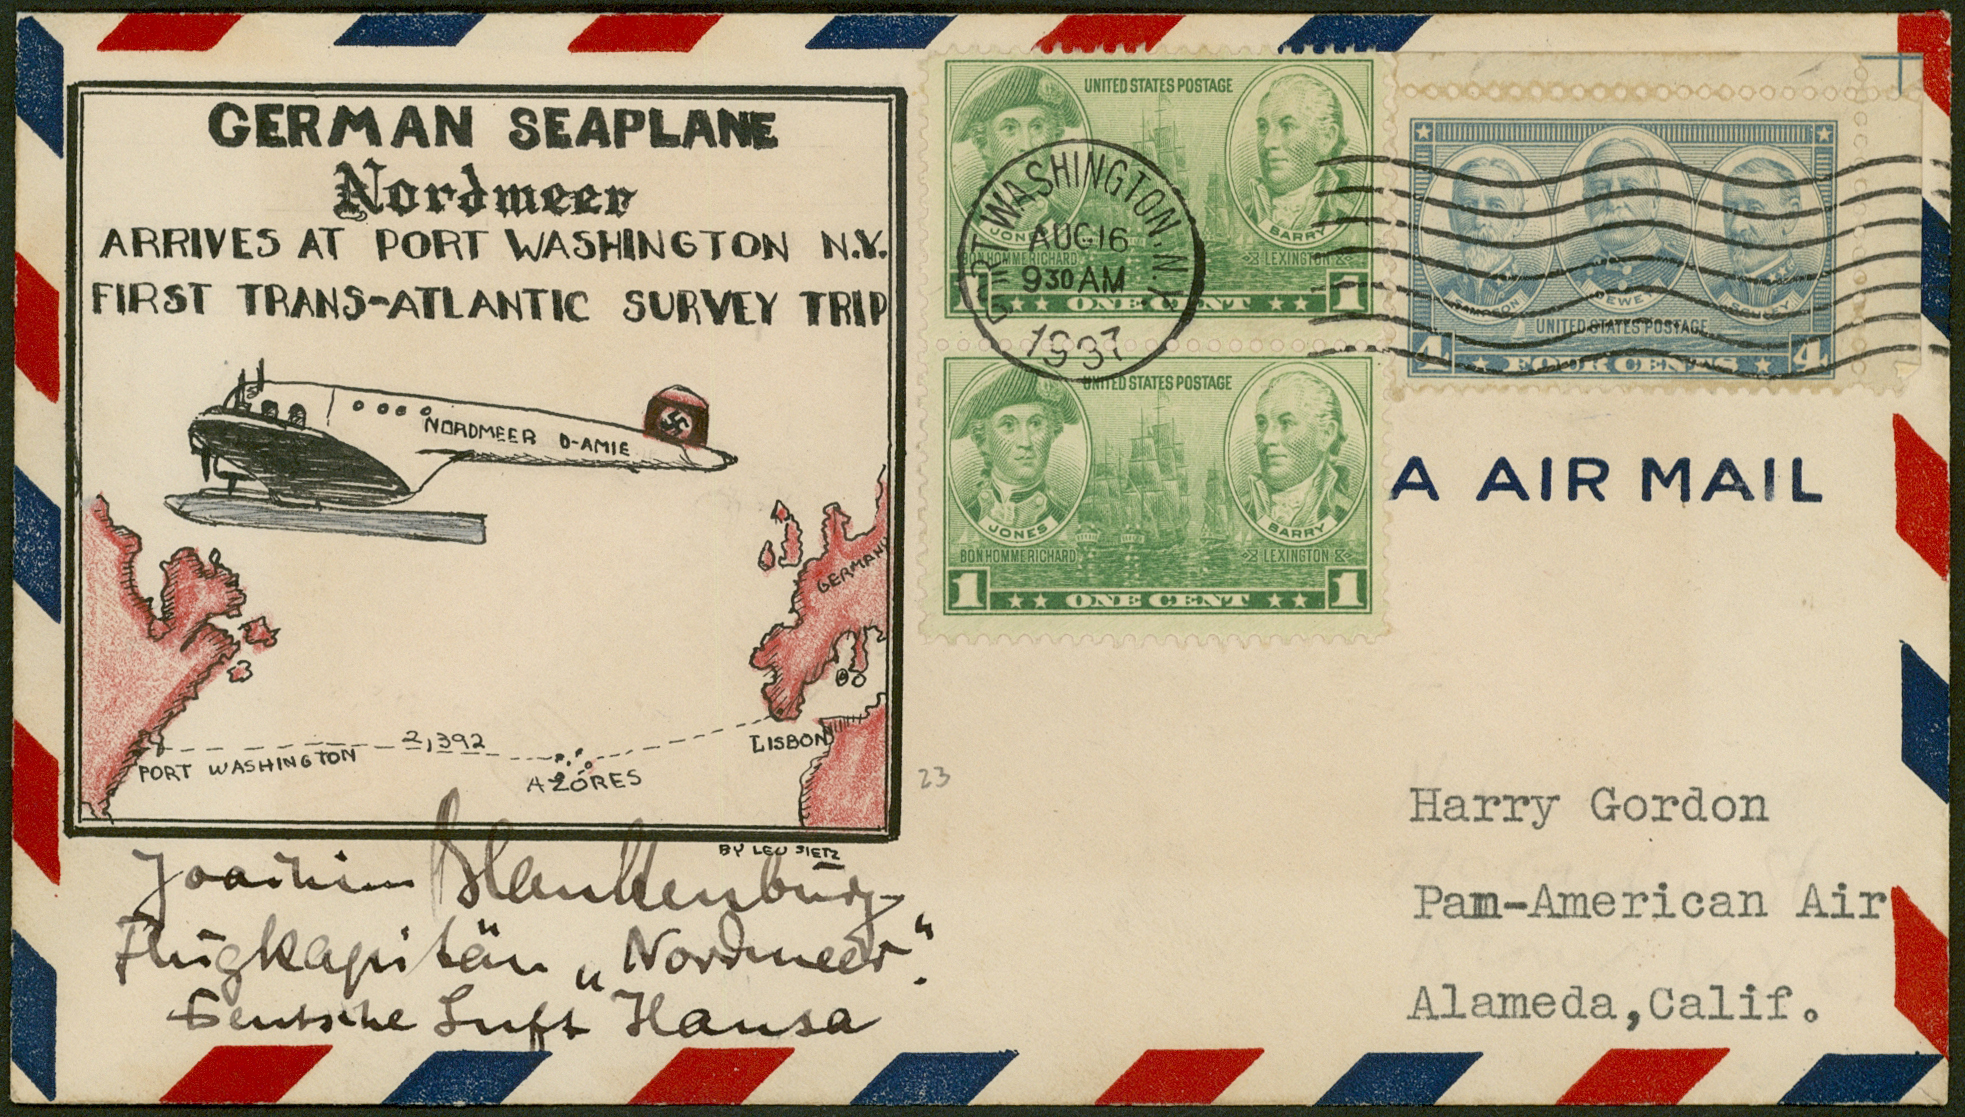 GERMAN SEAPLANE
Nordmeer
ARRIVES AT PORT WASHINGTON N.Y.
FIRST TRANS-ATLANTIC SURVEY TRIP
NORDMEER D-AMIE
GERMANY
PORT WASHINGTON
2,392
AZORES
LISBON
BY LEO SIETZ
Joachim Blankenburg
Flugkapitän „Nordmeer“.
Deutsche Luft Hansa
UNITED STATES POSTAGE
JONES
BARRY
BONHOMME RICHARD
LEXINGTON
1 ONE CENT 1
PORT WASHINGTON, N.Y.
AUG 16
930 AM
1937
UNITED STATES POSTAGE
JONES
BARRY
BONHOMME RICHARD
LEXINGTON
1 ONE CENT 1
SAMPSON
DEWEY
SCHLEY
UNITED STATES POSTAGE
4 FOUR CENTS 4
A AIR MAIL
23
Harry Gordon
Pam-American Air
Alameda,Calif.